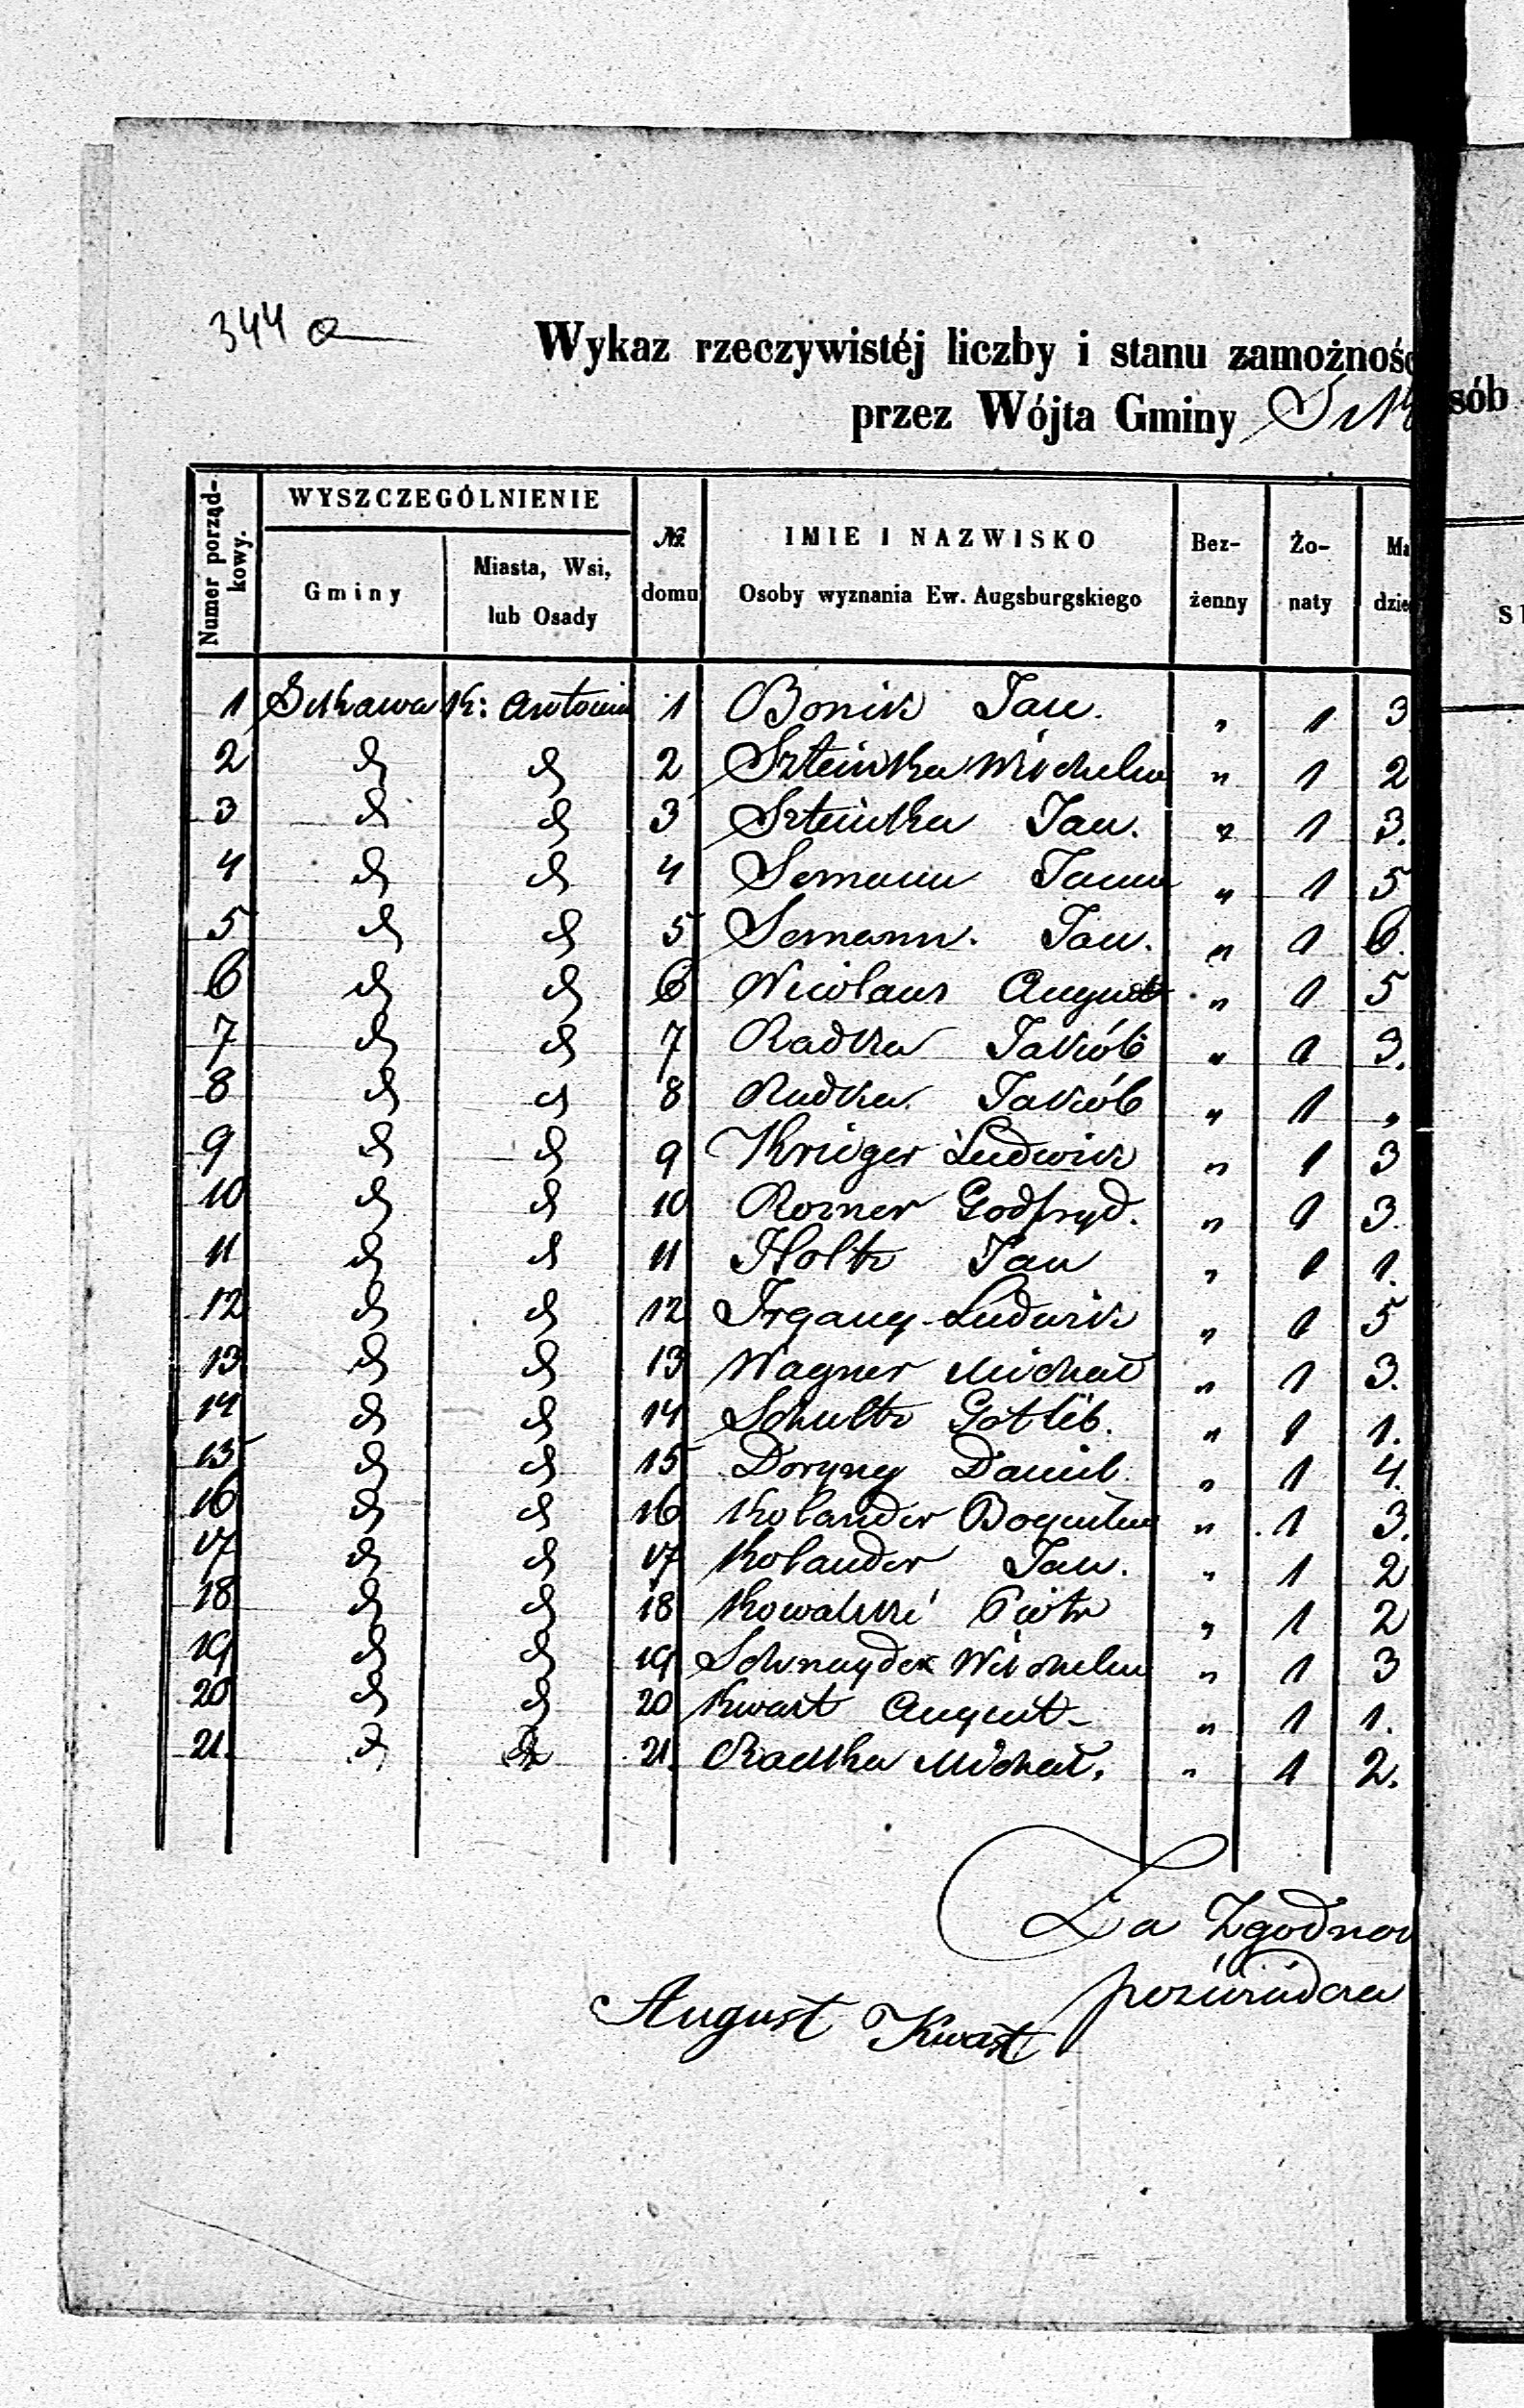 344 a
Wykaz rzeczywistéj liczby i stanu zamożnośc
przez Wójta Gminy
sób
Numer porząd-
kowy.
WYSZCZEGÓLNIENIE
Gminy
Miasta, Wsi,
lub Osady
№
domu
IMIE I NAZWISKO
Osoby wyznania Ew. Augsburgskiego
Bez-
żenny
Żo-
naty
Ma
dzie
1 K: Antonin 1 Bonik Jan. „ 1 3
2 d d 2 Szteinka Wichelm „ 1 2
3 d d 3 Szteinka Jan. „ 1 3.
4 d d 4 Semann „ 1 5
5 d d 5 Semann. Jan. „ 1 6.
6 d d 6 Nicolaus August „ 1 5
7 d d 7 Radka Jakób „ 1 3.
8 d d 8 Radka Jakób „ 1 „
9 d d 9 Kriger Ludwik „ 1 3
10 d d 10 Rozner Godfryd. „ 1 3.
11 d d 11 Holtz Jan „ 1 1.
12 d d 12 Irgang Ludwik „ 1 5
13 d d 13 Wagner Michał „ 1 3.
14 d d 14 Schultz Gotlib. „ 1 1.
15 d d 15 Doryng Daniel „ 1 4.
16 d d 16 Kolander „ 1 3.
17 d d 17 Kolander Jan. „ 1 2
18 d d 18 Kowalski Piotr „ 1 2
19 d d 19 Schnayder Wichelm „ 1 3
20 d d 20 Kwast August „ 1 1.
21. d d 21. Radtka Michał. „ 1 2.
Za Zgodnoś
poświadcza
August Kwast